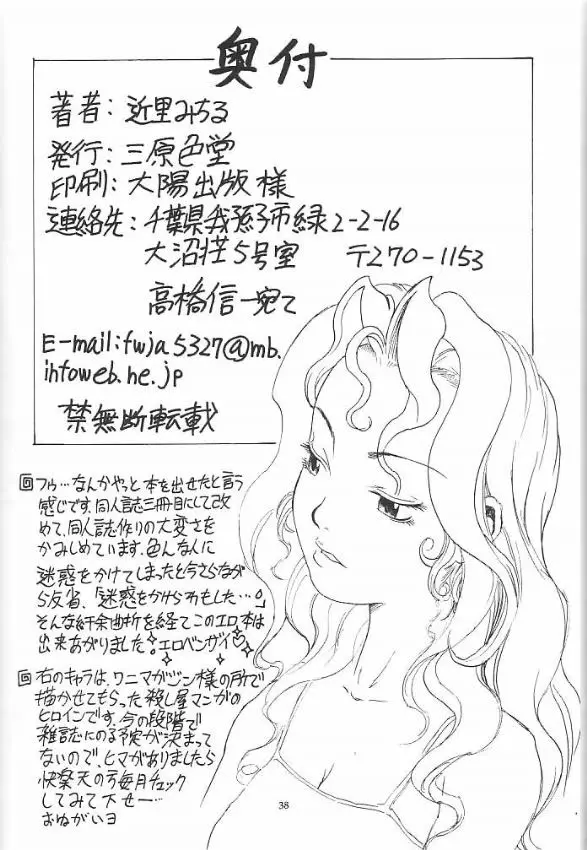 奥付
著者: 近里みちる
発行: 三原色堂
印刷: 大陽出版様
連絡先: 千葉県我孫子市緑2-2-16
大沼荘5号室 〒270-1153
高橋信一宛て
E-mail:fwja5327@mb.
infoweb.ne.jp
禁無断転載
フゥ…なんかやっと本を出せたと言う
感じです。同人誌三冊目にして改
めて、同人誌作りの大変さを
かみしめています。色んな人に
迷惑をかけてしまったと今さらなが
ら反省、「迷惑をかけられもした…。」
そんな紆余曲折を経てこのエロ本は
出来あがりました。エロベンザイ♡
右のキャラは、ワニマガジン様の所で
描かせてもらった殺し屋マンガの
ヒロインです。今の段階で
雑誌にのる予定が決まって
ないので、ヒマがありましたら
快楽天の方毎月チェック
してみて下せー…
おねがいヨ
38